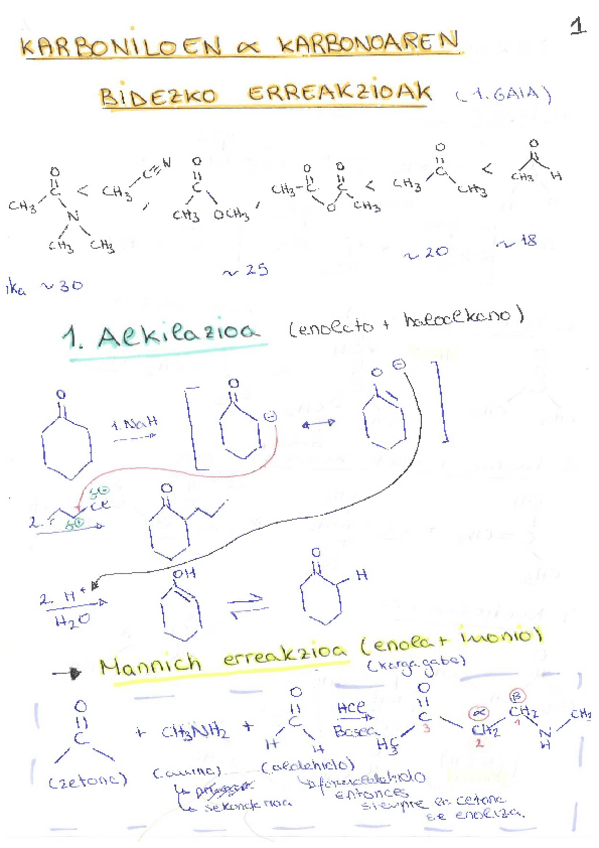 1
KARBONILOEN α KARBONOAREN
BIDEZKO ERREAKZIOAK (1. GAIA)
O O O O O O
CH3 C < CH3 C≡N , CH3 C OCH3 , CH3-C O C CH3 < CH3 C CH3 < CH3 H
N
CH3 CH3
~30 ~25 ~20 ~18
1. Alkilazioa (enolato + haloalkano)
O 1. NaH O ⊖ ↔ O ⊖
2. δ⊕ δ⊖ Cl O
2. H+ OH ⇌ O H
H2O
→ Mannich erreakzioa (enola + imonio)
(karga gabe)
O C + CH3NH2 + O C H H HCl Basea H3C O C 3 α CH2 2 β CH2 1 N H CH3
(zetona) (amina) (aldehido)
↳ sekundarioa
↳ formaldehido
entonces
siempre la cetona
se enoliza.